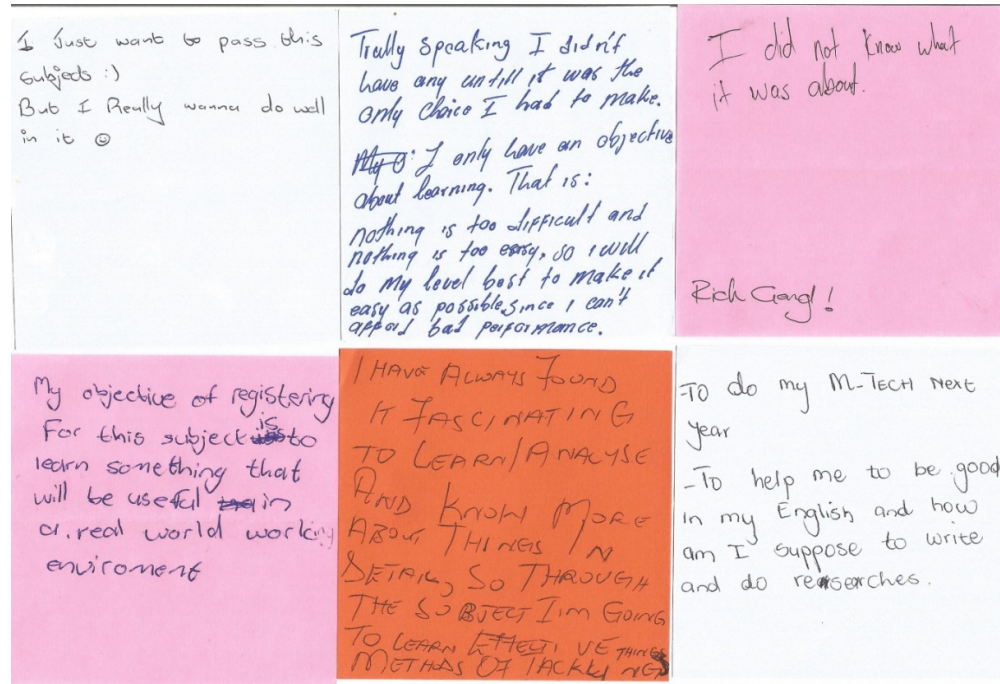 I Just want to pass this
subject :)
But I Really wanna do well
in it ☺
Trully speaking I didn't
have any untill it was the
only choice I had to make.
My O: I only have an objective
about learning. That is:
nothing is too difficult and
nothing is too easy, so i will
do my level best to make it
easy as possible, since i can't
afford bad performance.
I did not know what
it was about.
Rich Gang!
My objective of registering
For this subject is to
learn something that
will be useful in
a real world working
enviroment
I HAVE ALWAYS FOUND
IT FASCINATING
TO LEARN/ANALYSE
AND KNOW MORE
ABOUT THINGS IN
DETAIL, SO THROUGH
THE SUBJECT I'M GOING
TO LEARN EFFECTIVE THINGS
METHODS OF TACKLING
-TO do my M-TECH NEXT
year
-To help me to be good
in my English and how
am I suppose to write
and do researches.